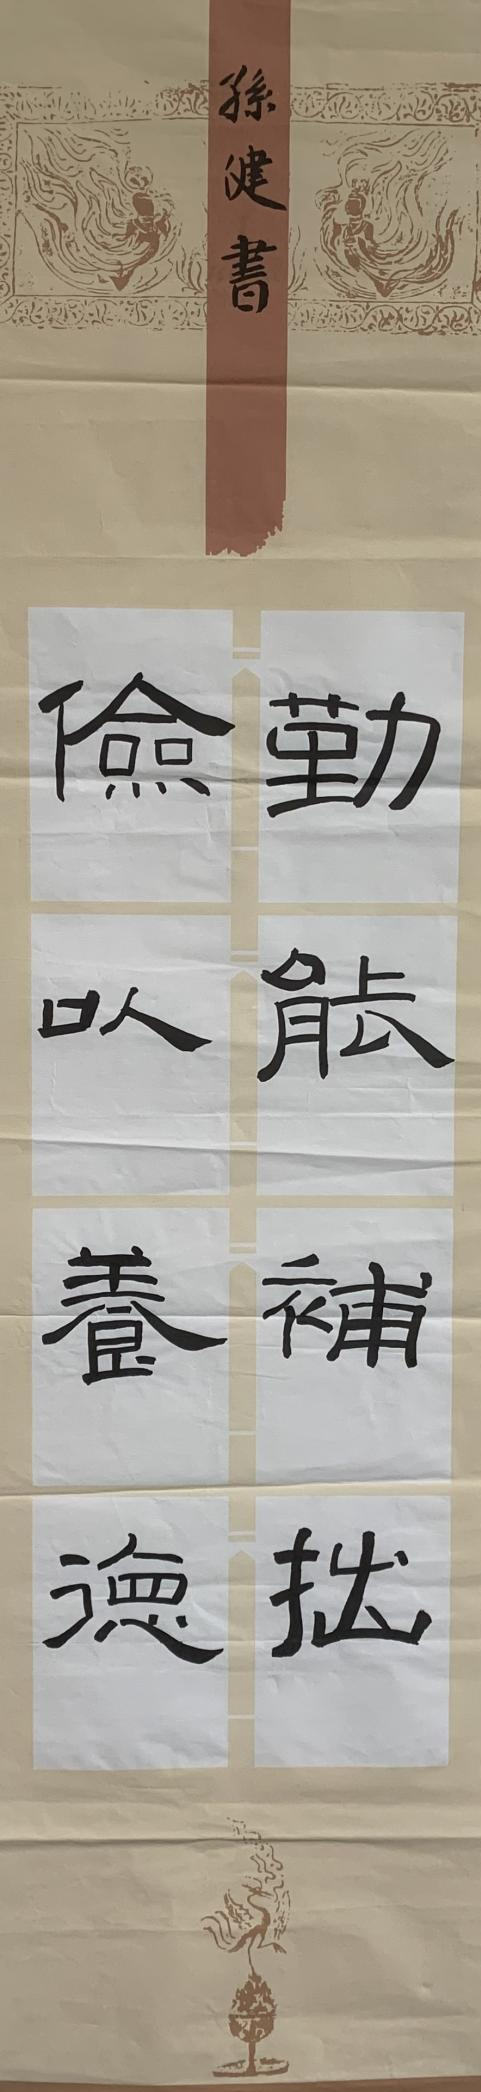 孫健書
勤能補拙
儉以養德